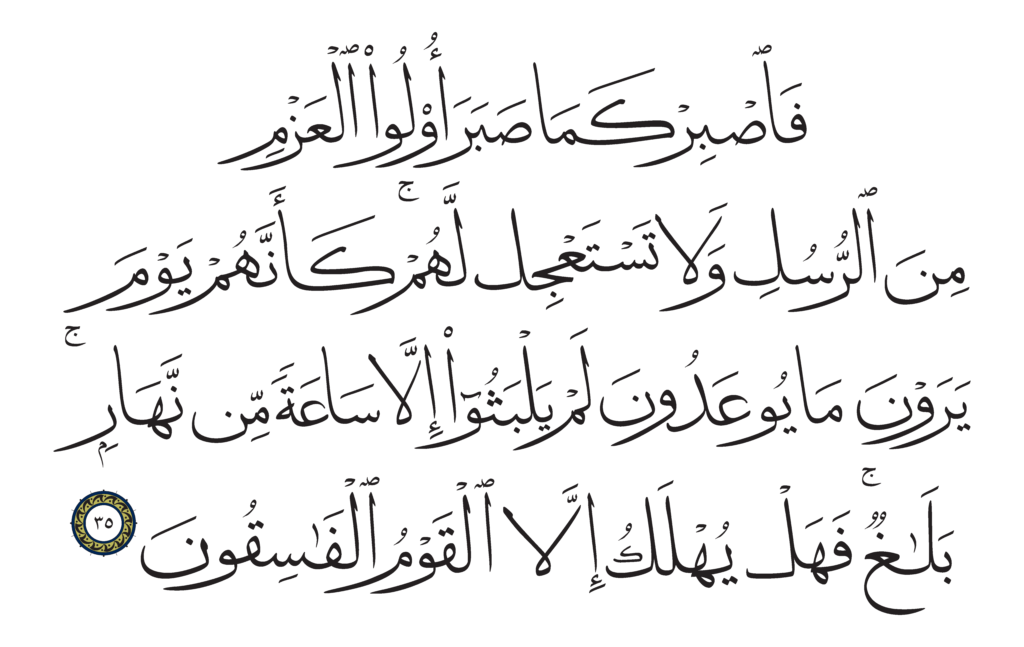 فَٱصْبِرْ كَمَا صَبَرَ أُوْلُوا۟ ٱلْعَزْمِ
مِنَ ٱلرُّسُلِ وَلَا تَسْتَعْجِل لَّهُمْ ۚ كَأَنَّهُمْ يَوْمَ
يَرَوْنَ مَا يُوعَدُونَ لَمْ يَلْبَثُوٓا۟ إِلَّا سَاعَةً مِّن نَّهَارٍۭ ۚ
بَلَـٰغٌ ۚ فَهَلْ يُهْلَكُ إِلَّا ٱلْقَوْمُ ٱلْفَـٰسِقُونَ ٣٥